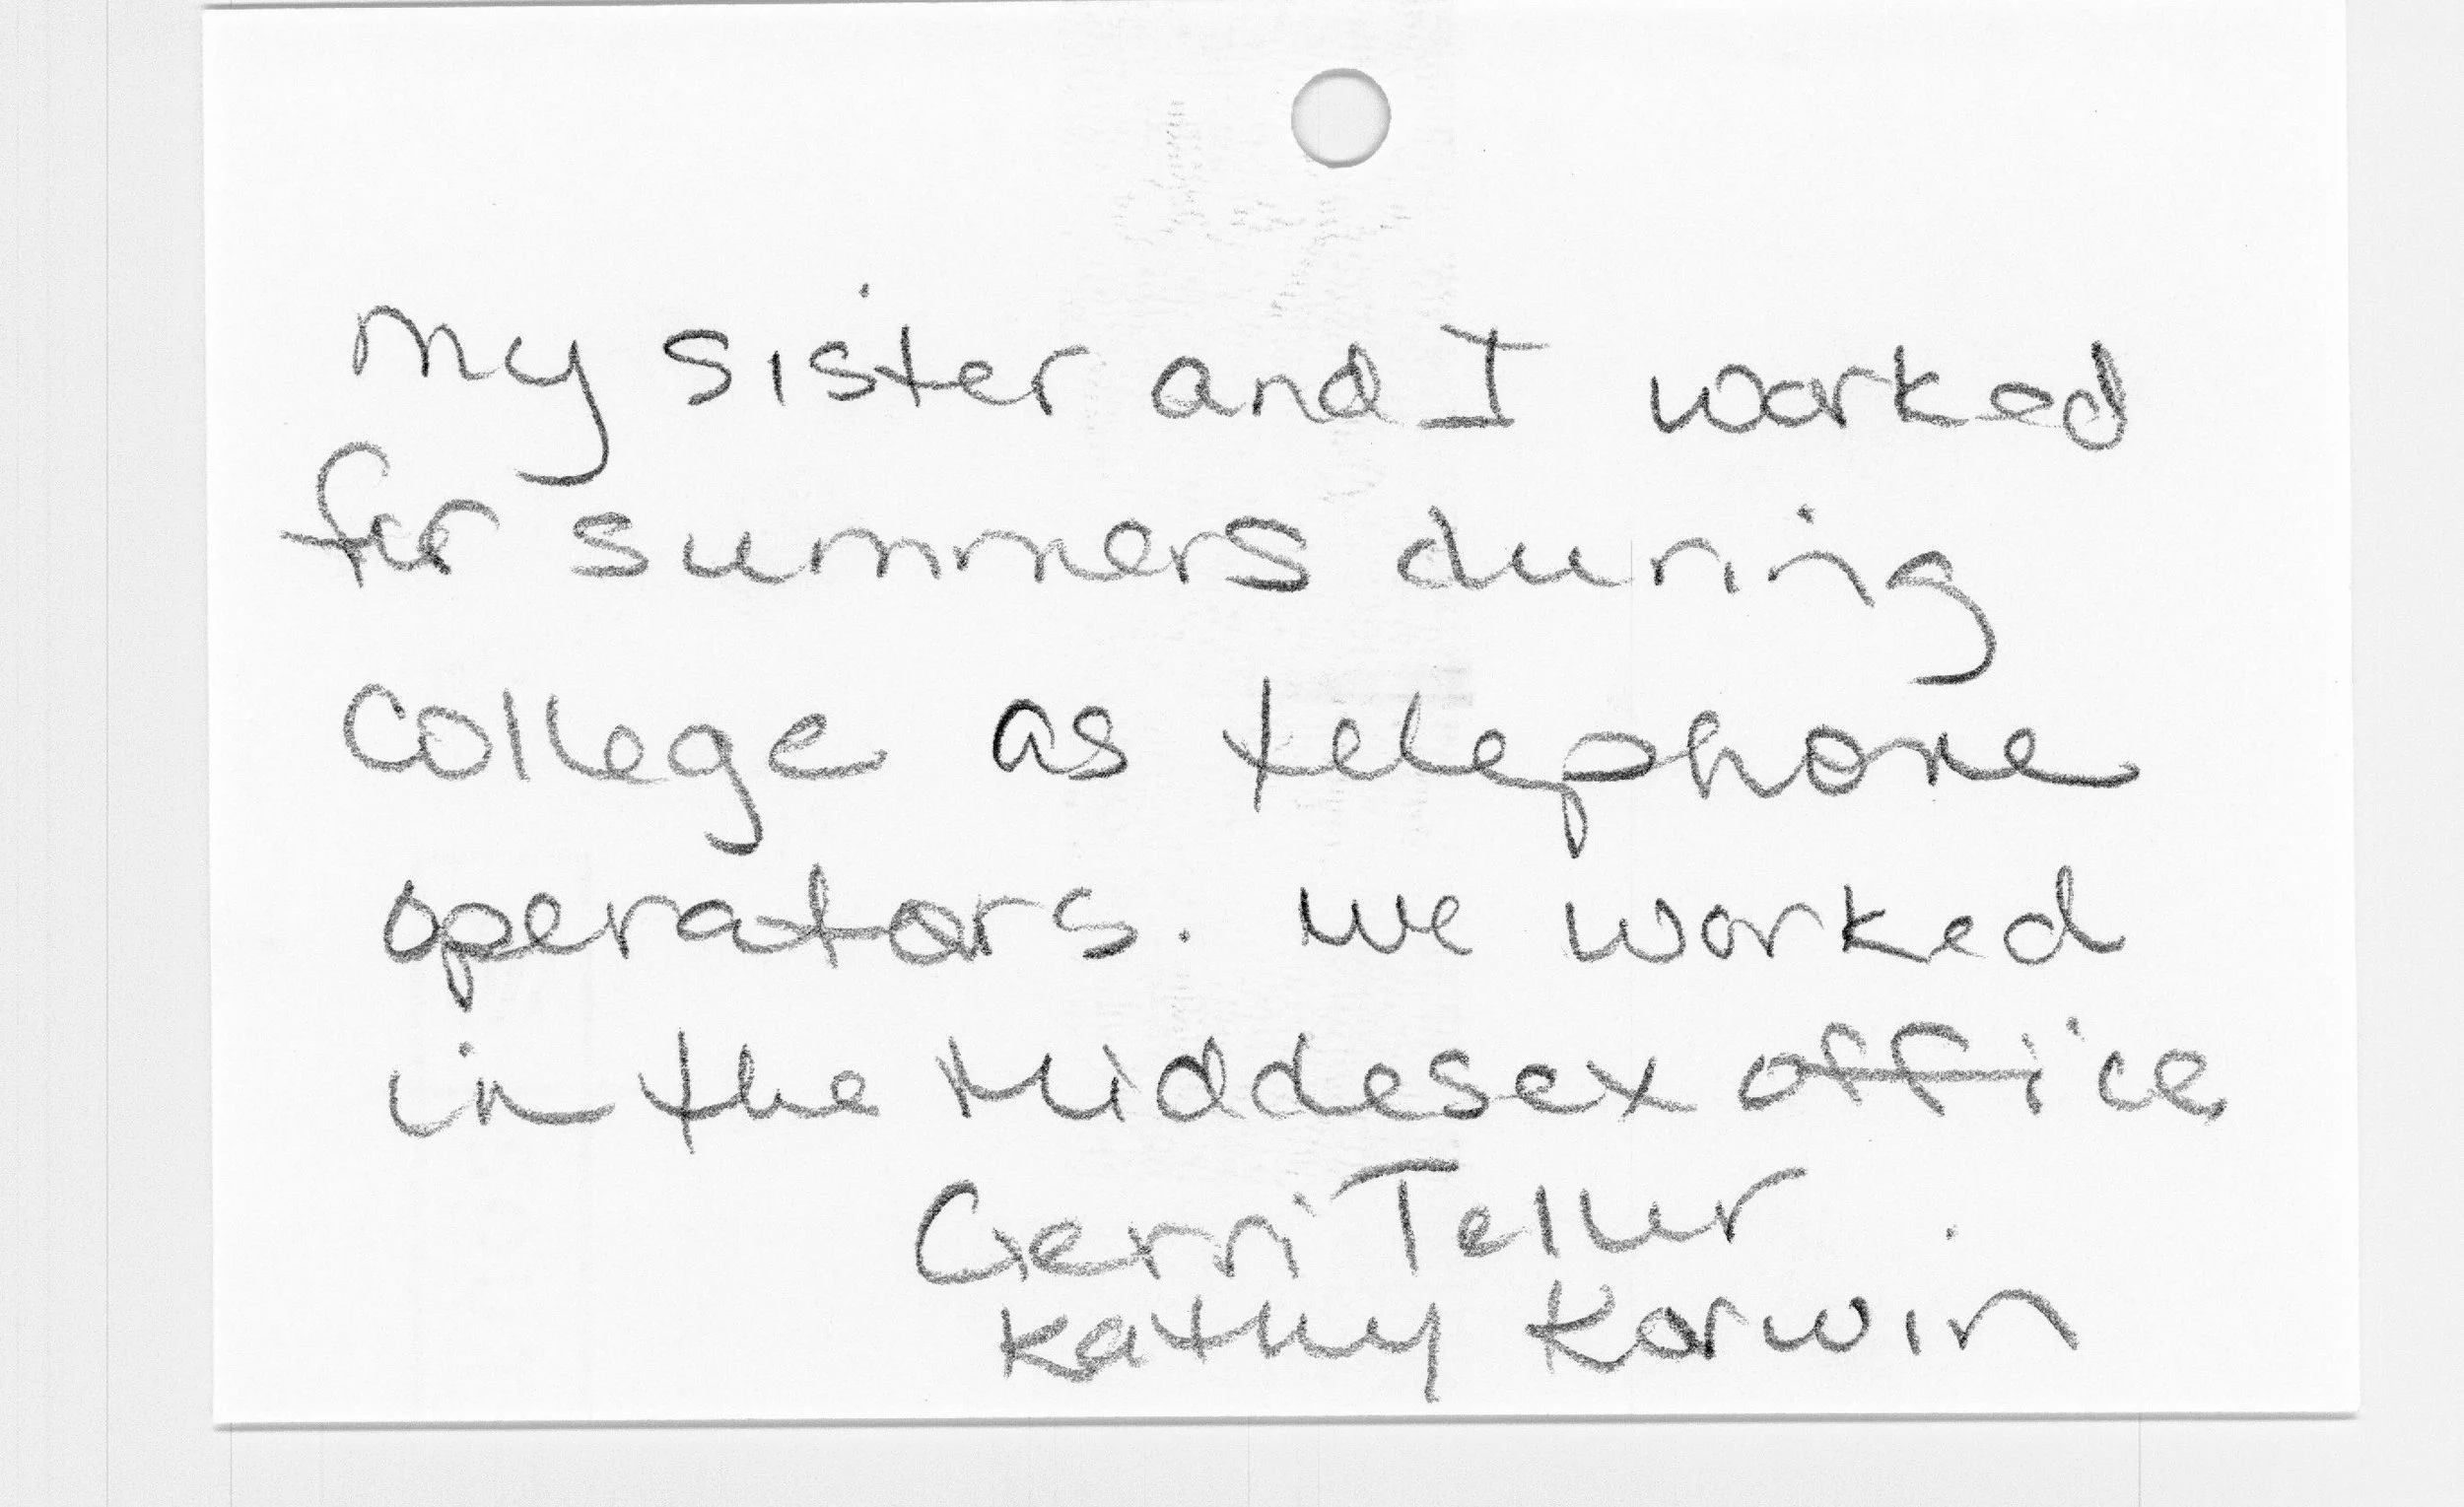 My sister and I worked
for summers during
College as telephone
operators. We worked
in the Middesex office
Gerri Teller
Kathy Korwin